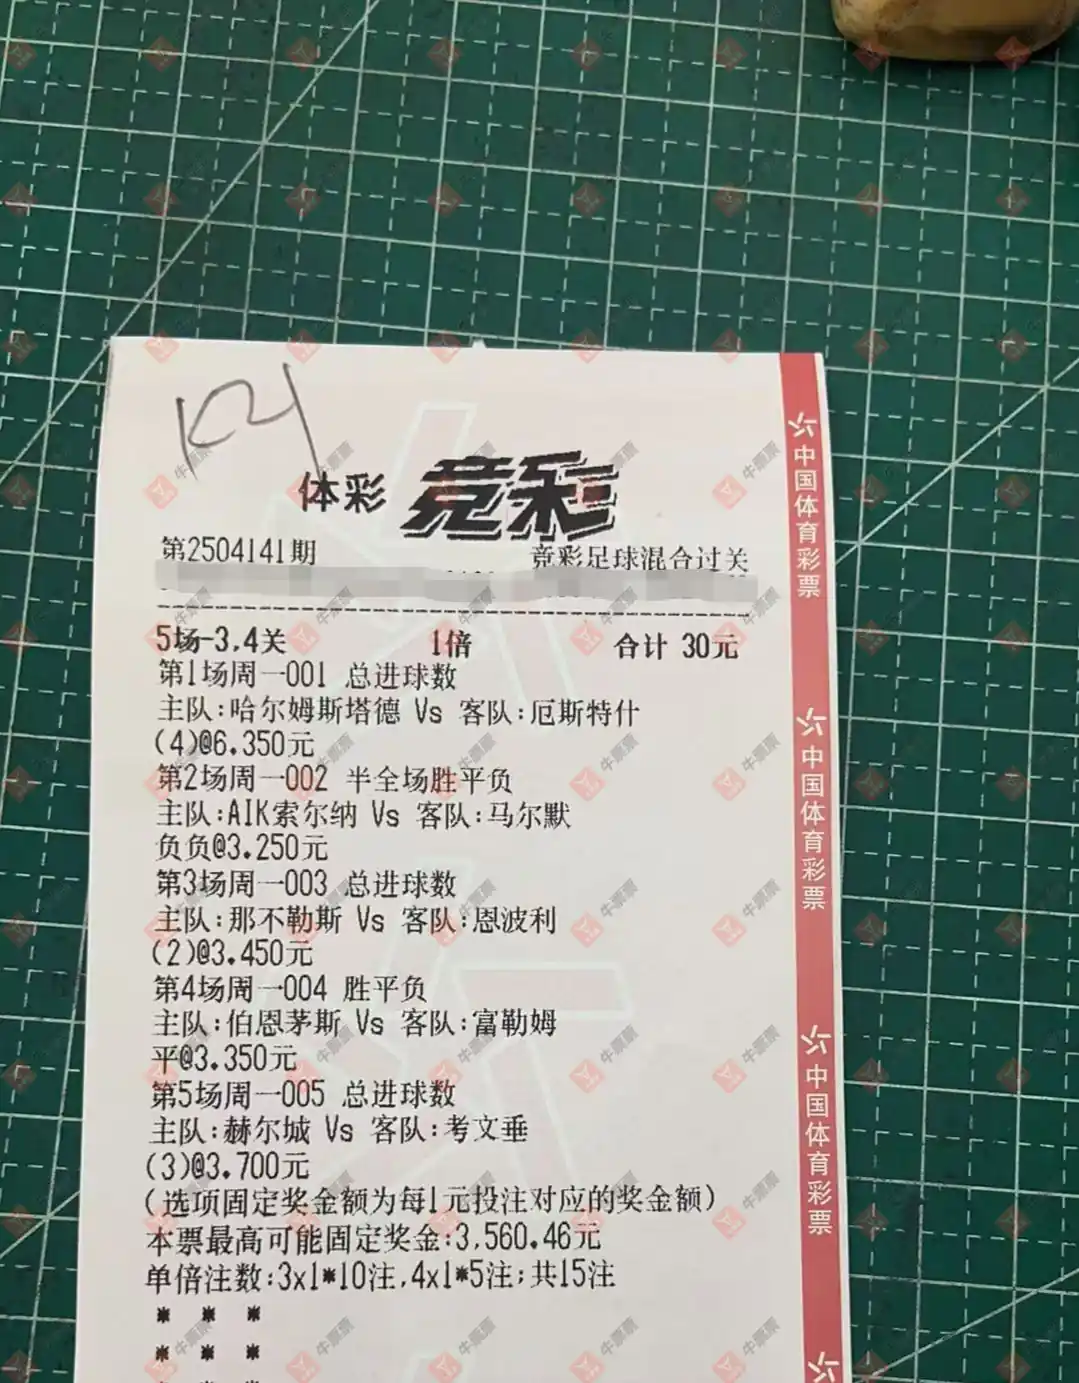 体彩 竞彩
第2504141期 竞彩足球混合过关
5场-3.4关 1倍 合计 30元
第1场周一001 总进球数
主队:哈尔姆斯塔德 Vs 客队:厄斯特什
(4)@6.350元
第2场周一002 半全场胜平负
主队:AIK索尔纳 Vs 客队:马尔默
负负@3.250元
第3场周一003 总进球数
主队:那不勒斯 Vs 客队:恩波利
(2)@3.450元
第4场周一004 胜平负
主队:伯恩茅斯 Vs 客队:富勒姆
平@3.350元
第5场周一005 总进球数
主队:赫尔城 Vs 客队:考文垂
(3)@3.700元
(选项固定奖金额为每1元投注对应的奖金额)
本票最高可能固定奖金:3,560.46元
单倍注数:3x1*10注,4x1*5注;共15注
* * *
* * *
中国体育彩票
中国体育彩票
中国体育彩票
牛票票